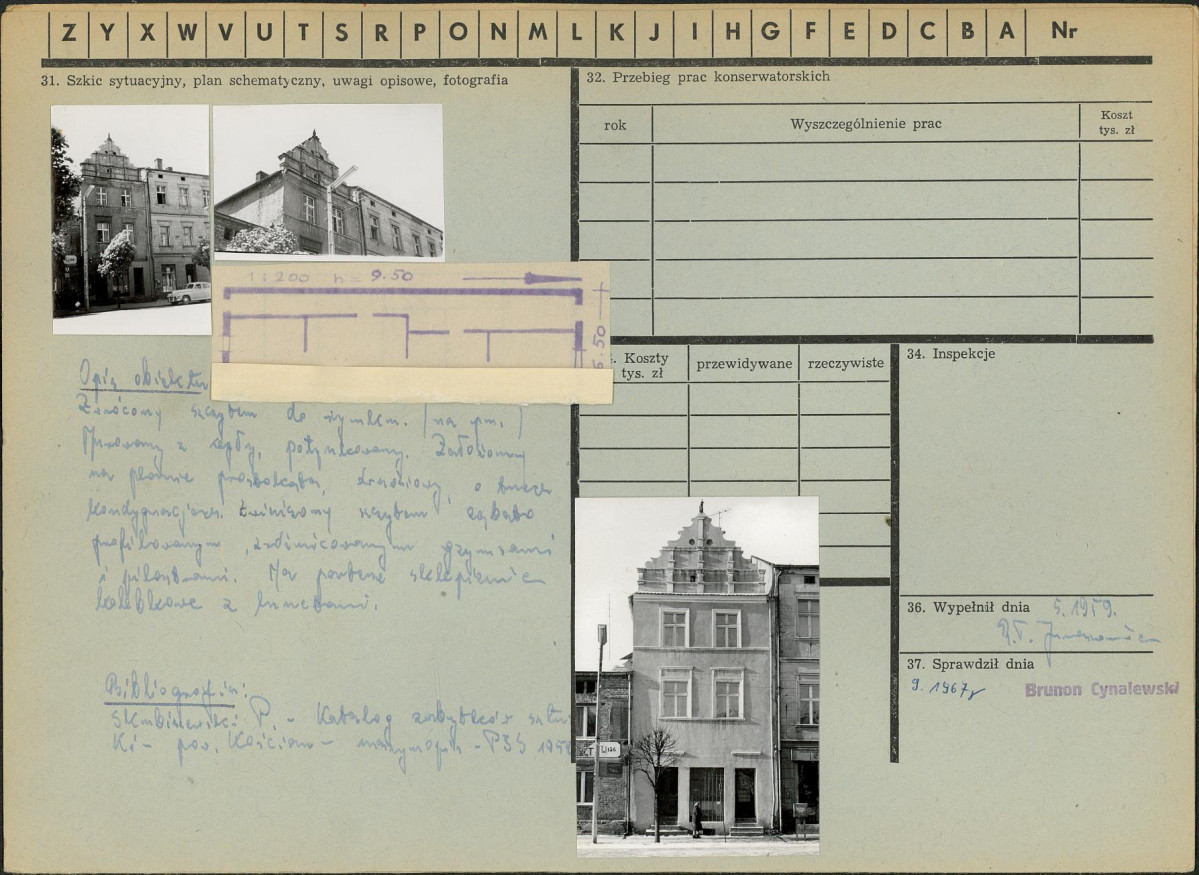 Z Y X W V U T S R P O N M L K J I H G F E D C B A Nr
31. Szkic sytuacyjny, plan schematyczny, uwagi opisowe, fotografia
32. Przebieg prac konserwatorskich
rok
Wyszczególnienie prac
Koszt
tys. zł
1:200 h = 9.50
5.50
Koszty
tys. zł
przewidywane
rzeczywiste
34. Inspekcje
Opis obiektu
Zwrócony szczytem do rynku. (na pn.)
Murowany z cegły, potynkowany. Założony
na planie prostokąta, o trzech
kondygnacjach. Zwieńczony szczytem
profilowanym gzymsami
i pilastrami. Na parterze sklepienie
kolebkowe z lunetami.
Bibliografia:
P. - Katalog zabytków sztu
pow. Kościan - maszynopis - PSS 195
36. Wypełnił dnia 5.1959.
37. Sprawdził dnia
9.1967r
Brunon Cynalewski